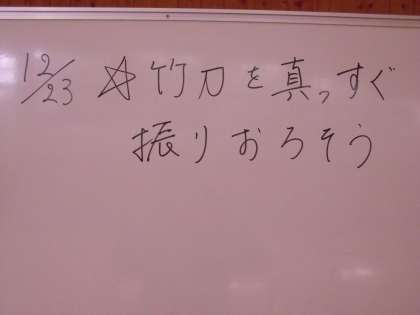 12/23 ☆竹刀を真っすぐ
振りおろそう